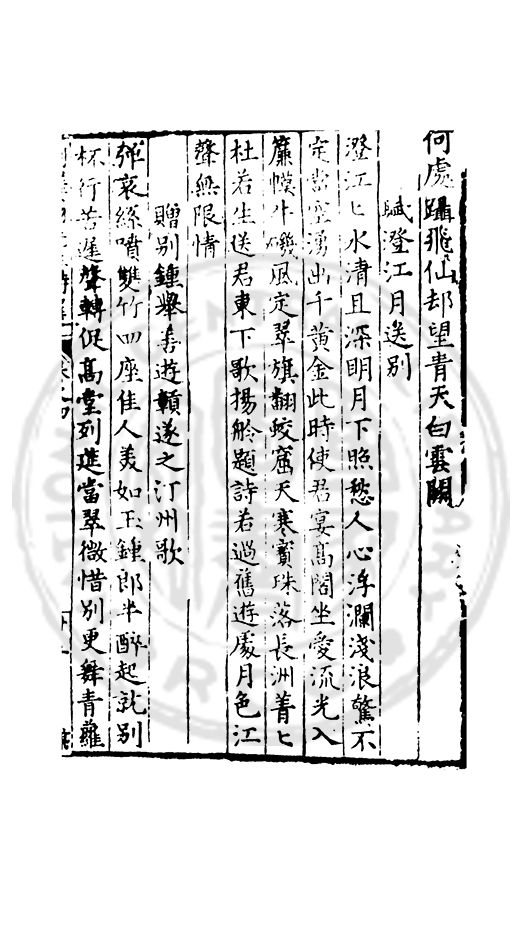 何處躡飛仙却望青天白雲闕
賦澄江月送別
澄江匕水清且深明月下照愁人心浮瀾淺浪驚不
定當空湧出千黃金此時使君宴高閣坐愛流光入
簾幙牛磯風定翠旗翻蛟窟天寒寶珠落長洲菁匕
杜若生送君東下歌揚舲題詩若過舊遊處月色江
聲無限情
贈別鍾舉善遊贑遂之汀州歌
彈哀絲噴雙竹四座佳人美如玉鍾郎半醉起就別
杯行苦遲聲轉促高堂列進當翠微惜別更舞青蘿